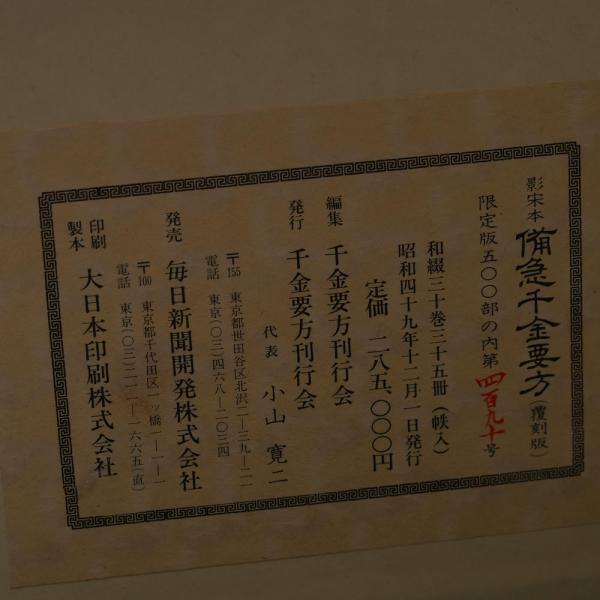 影宋本 備急千金要方(覆刻版)
限定版五〇〇部の内第四百九十号
和綴三十巻三十五冊(帙入)
昭和四十九年十二月一日発行
定価 二八五、〇〇〇円
編集 千金要方刊行会
発行 千金要方刊行会
代表 小山寛二
〒155 東京都世田谷区北沢二―三九―二一
電話 東京(〇三)四六八―二〇三四
発売 毎日新聞開発株式会社
〒100 東京都千代田区一ッ橋一―一―一
電話 東京(〇三)二一一―一六六五(直)
印刷
製本 大日本印刷株式会社